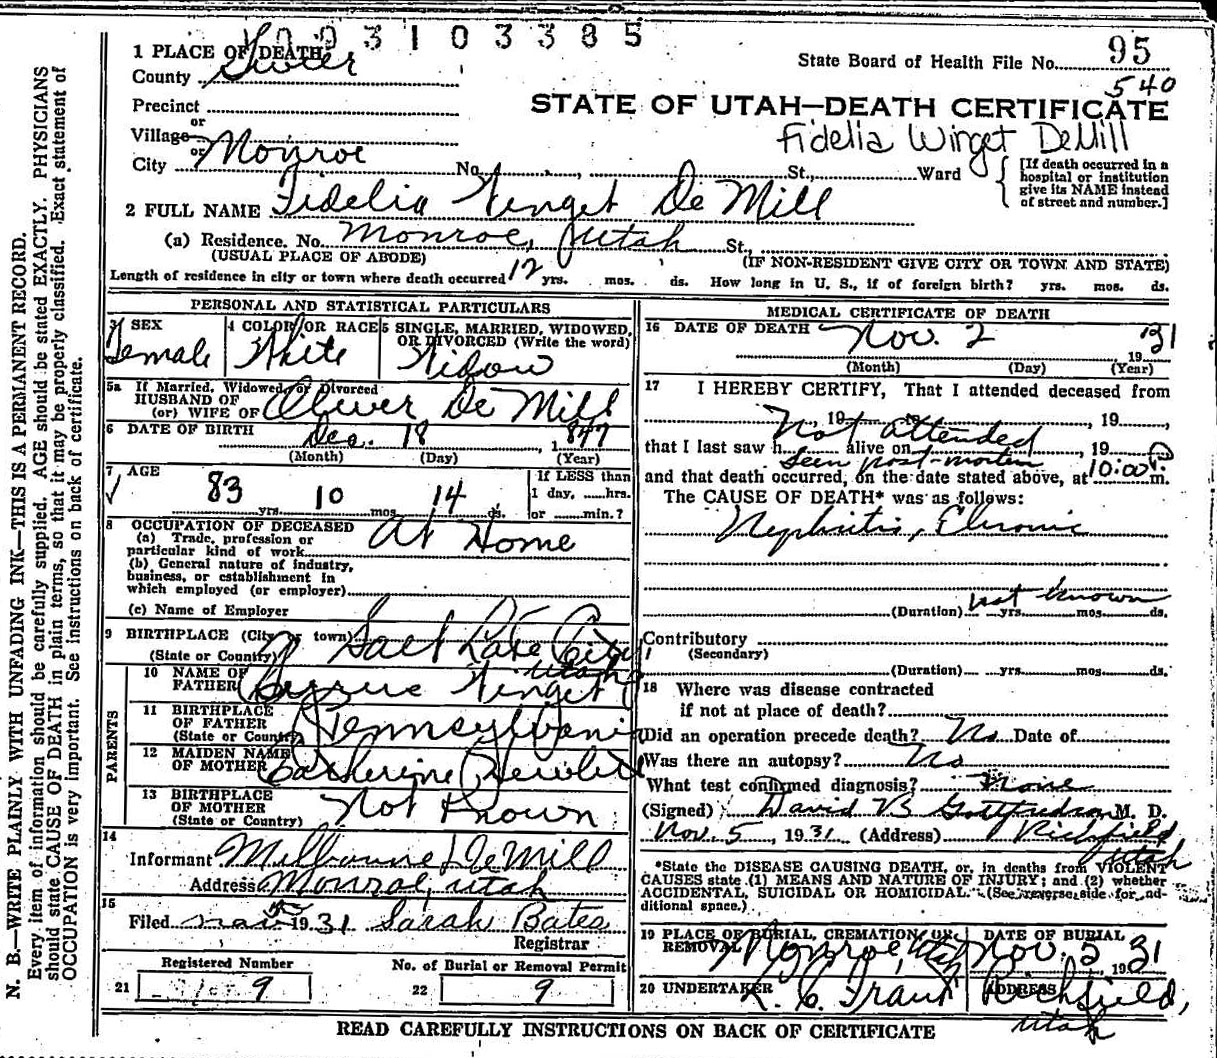 1 PLACE OF DEATH 0 0 3 1 0 3 3 8 5
State Board of Health File No. 95
County Sevier
540
Precinct
STATE OF UTAH—DEATH CERTIFICATE
or
Village
Fidelia Winget DeMill
or
City Monroe No. St., Ward
[If death occurred in a
hospital or institution
give its NAME instead
of street and number.]
2 FULL NAME Fidelia Winget De Mill
(a) Residence. No. Monroe, Utah St.,
(USUAL PLACE OF ABODE) (IF NON-RESIDENT GIVE CITY OR TOWN AND STATE)
Length of residence in city or town where death occurred 12 yrs. mos. ds. How long in U. S., if of foreign birth? yrs. mos. ds.
PERSONAL AND STATISTICAL PARTICULARS
3 SEX
Female
4 COLOR OR RACE
White
5 SINGLE, MARRIED, WIDOWED,
OR DIVORCED (Write the word)
Widow
5a If Married, Widowed, or Divorced
HUSBAND OF
(or) WIFE OF Oliver De Mill
6 DATE OF BIRTH Dec. 18, 1847
(Month) (Day) (Year)
7 AGE
83 yrs. 10 mos. 14 ds.
If LESS than
1 day, ......hrs.
or ......min.?
8 OCCUPATION OF DECEASED
(a) Trade, profession or
particular kind of work At Home
(b) General nature of industry,
business, or establishment in
which employed (or employer)
(c) Name of Employer
9 BIRTHPLACE (City or town) Salt Lake City
(State or Country) Utah
PARENTS
10 NAME OF
FATHER Cyrus Winget
11 BIRTHPLACE
OF FATHER
(State or Country) Pennsylvania
12 MAIDEN NAME
OF MOTHER Catherine
13 BIRTHPLACE
OF MOTHER
(State or Country) Not Known
14
Informant Milbourne DeMill
Address Monroe, Utah
15
Filed Nov 5 1931 Sarah Bates
Registrar
Registered Number
21 9
No. of Burial or Removal Permit
22 9
MEDICAL CERTIFICATE OF DEATH
16 DATE OF DEATH Nov. 2 1931
(Month) (Day) (Year)
17 I HEREBY CERTIFY, That I attended deceased from
, 19 , 19
Not attended
that I last saw h alive on , 19
Seen post-mortem
and that death occurred, on the date stated above, at 10:00 P. m.
The CAUSE OF DEATH* was as follows:
Nephritis, Chronic
(Duration) not known yrs. mos. ds.
Contributory
(Secondary)
(Duration) yrs. mos. ds.
18 Where was disease contracted
if not at place of death?
Did an operation precede death? No Date of
Was there an autopsy? No
What test confirmed diagnosis? None
(Signed) David B Gottfredson M. D.
Nov. 5, 1931 (Address) Richfield
Utah
*State the DISEASE CAUSING DEATH, or, in deaths from VIOLENT
CAUSES state (1) MEANS AND NATURE OF INJURY; and (2) whether
ACCIDENTAL, SUICIDAL OR HOMICIDAL. (See reverse side for ad-
ditional space.)
19 PLACE OF BURIAL, CREMATION OR
REMOVAL Monroe, Utah
DATE OF BURIAL
Nov. 5 1931
20 UNDERTAKER
ADDRESS
Richfield,
Utah
READ CAREFULLY INSTRUCTIONS ON BACK OF CERTIFICATE
N. B.—WRITE PLAINLY WITH UNFADING INK—THIS IS A PERMANENT RECORD.
Every item of information should be carefully supplied. AGE should be stated EXACTLY. PHYSICIANS
should state CAUSE OF DEATH in plain terms, so that it may be properly classified. Exact statement of
OCCUPATION is very important. See instructions on back of certificate.